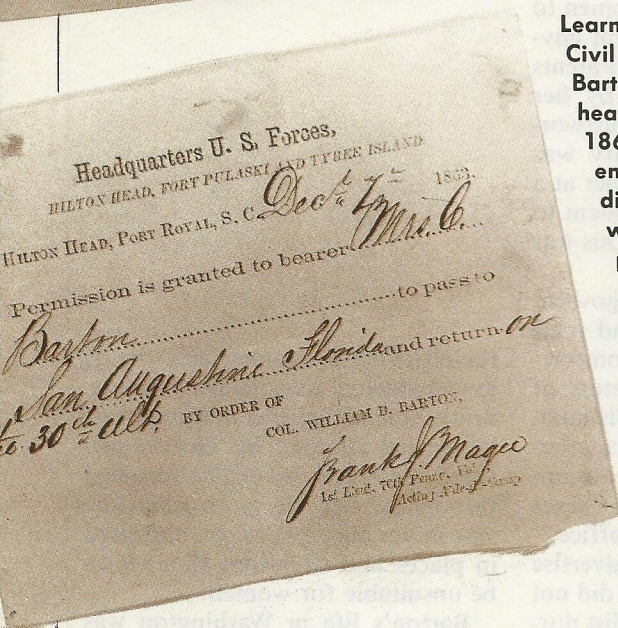 Headquarters U. S. Forces,
HILTON HEAD, FORT PULASKI AND TYBEE ISLAND
HILTON HEAD, PORT ROYAL, S. C. Dec. 7th 1863.
Permission is granted to bearer Mrs. C.
Barton to pass to
San Augustine Florida and return on
30th ult.
BY ORDER OF
COL. WILLIAM B. BARTON,
Frank J. Magee
1st Lieut. 76th Penna. Vol
Acting A'de-de-Camp
Learn
Civil
Bart
hea
186
en
di
w